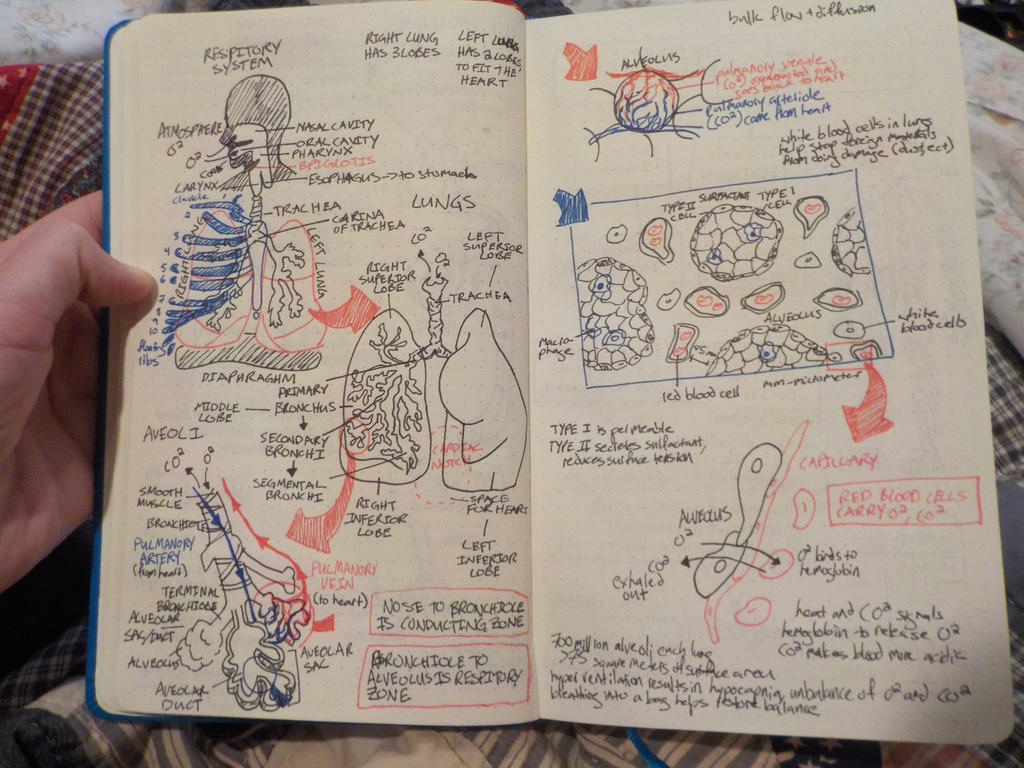 RESPITORY
SYSTEM
RIGHT LUNG
HAS 3 LOBES
LEFT LUNG
HAS 2 LOBES
TO FIT THE
HEART
ATMOSPHERE
O²
O²
CO²
NASAL CAVITY
ORAL CAVITY
PHARYNX
EPIGLOTIS
ESOPHAGUS -> to stumach
LARYNX
clavicle
1
2
3
4
5
6
7
8
9
10
floating
ribs
RIGHT
LEFT LUNG
TRACHEA
CARINA
OF TRACHEA
DIAPHRAGM
LUNGS
CO²
O²
RIGHT
SUPERIOR
LOBE
LEFT
SUPERIOR
LOBE
TRACHEA
PRIMARY
BRONCHUS
MIDDLE
LOBE
SECONDARY
BRONCHI
SEGMENTAL
BRONCHI
CARDIAC
NOTCH
RIGHT
INFERIOR
LOBE
SPACE
FOR HEART
LEFT
INFERIOR
LOBE
AVEOLI
CO²
O²
SMOOTH
MUSCLE
BRONCHIOLE
PULMANARY
ARTERY
(from heart)
TERMINAL
BRONCHIOLE
ALVEOLAR
SAC/DUCT
ALVEOLUS
AVEOLAR
DUCT
PULMANARY
VEIN
(to heart)
AVEOLAR
SAC
NOSE TO BRONCHIOLE
IS CONDUCTING ZONE
BRONCHIOLE TO
ALVEOLUS IS RESPITORY
ZONE
bulk flow + diffusion
ALVEOLUS
pulmonary venule
(O²) oxygenated
goes back to heart
pulmonary arteriole
(CO²) came from heart
white blood cells in lungs
help stop foreign materials
from doing damage (dust, ect)
TYPE II
CELL
SURFACTANT
TYPE I
CELL
ALVEOLUS
macro-
phage
white
blood cells
red blood cell
mm-micrometer
TYPE I is permeable
TYPE II secretes sulfactant,
reduces surface tension
CAPILLARY
RED BLOOD CELLS
CARRY O², CO²
ALVEOLUS
O²
CO²
exhaled
out
O² binds to
hemoglobin
heat and CO² signals
hemoglobin to release O²
CO² makes blood more acidic
300 million alveoli each lung
>75 square meters of surface area
hyperventilation results in hypocapnia, unbalance of O² and CO²
breathing into a bag helps restore balance